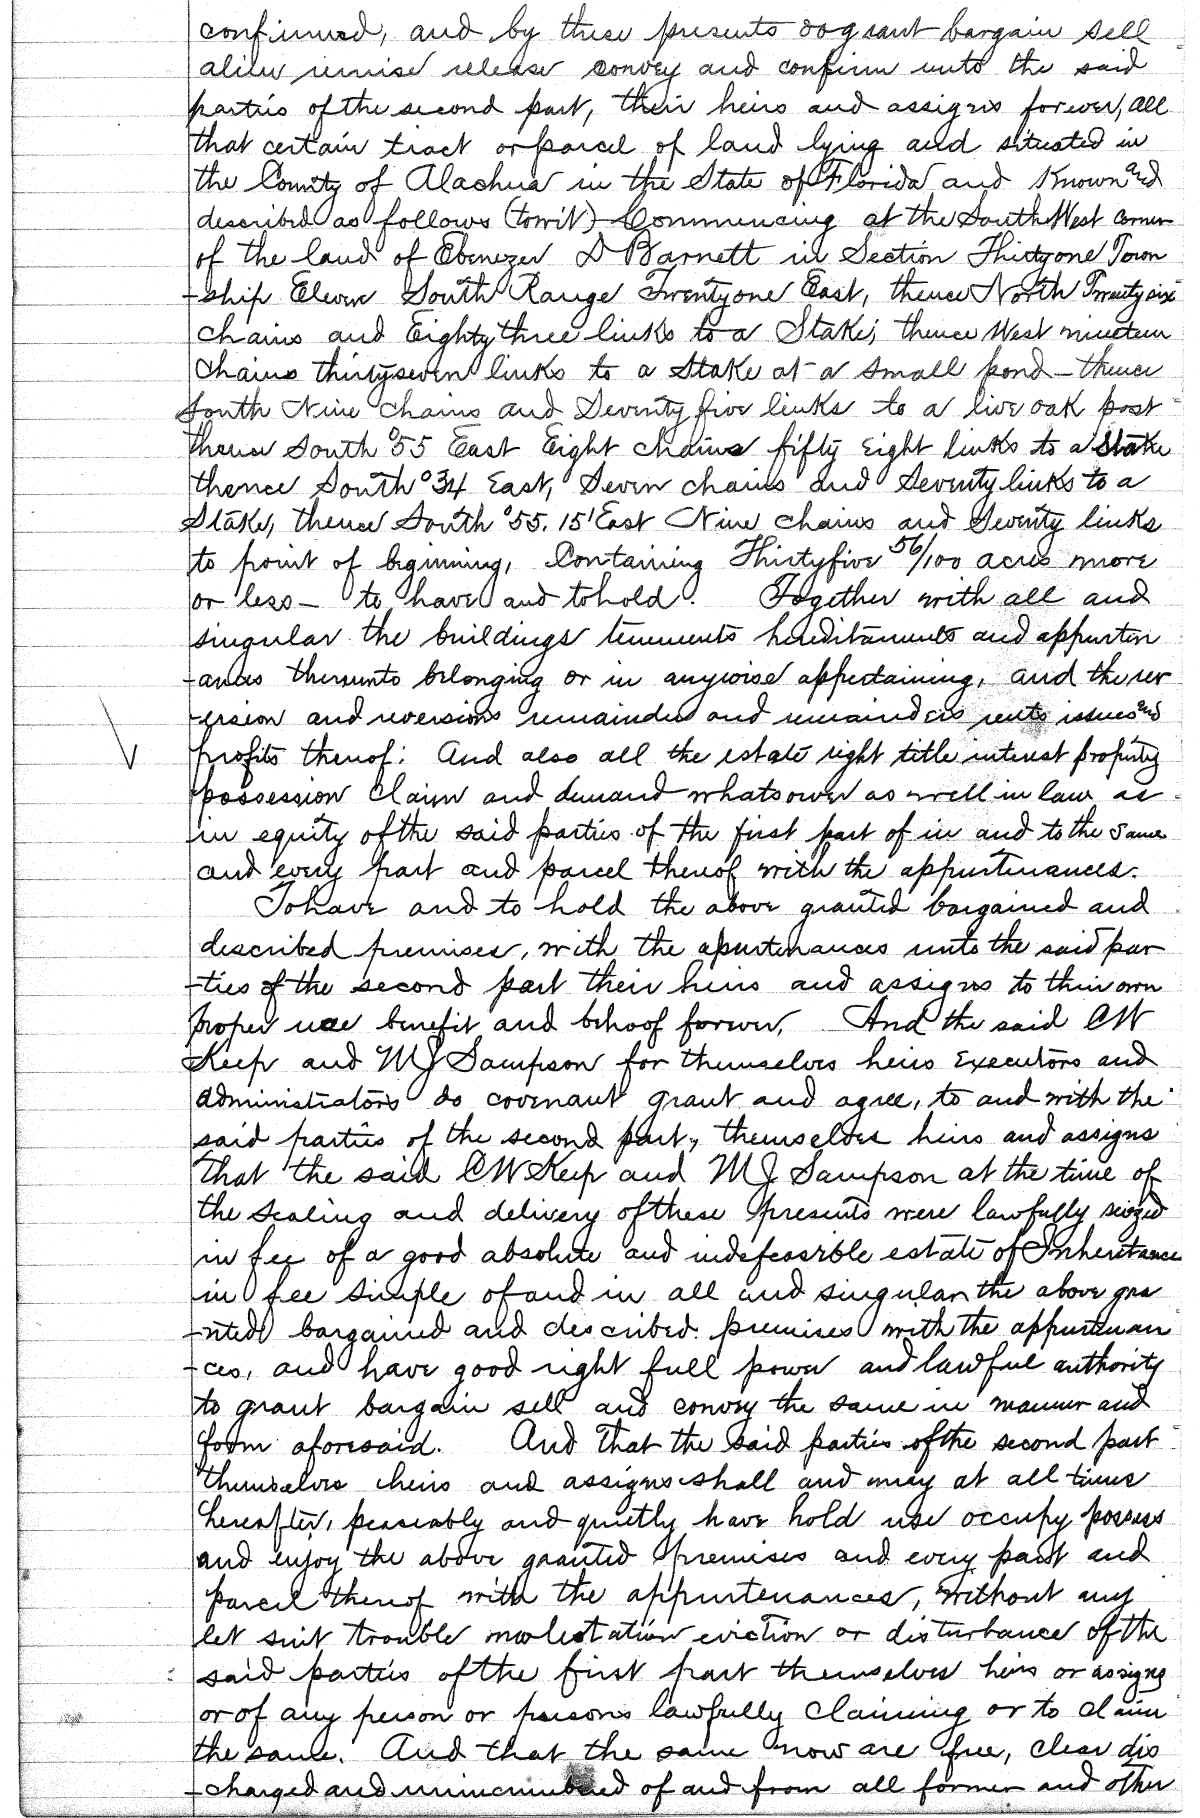 confirmed, and by these presents do grant bargain sell
alien remise release convey and confirm unto the said
parties of the second part, their heirs and assigns forever, all
that certain tract or parcel of land lying and situated in
the County of Alachua in the State of Florida and Known and
described as follows (towit) Commencing at the South West corner
of the land of Ebenezer D Barnett in Section Thirtyone Town
-ship Eleven South Range Twentyone East, thence North Twentysix
chains and Eightythree links to a Stake; thence West nineteen
chains thirtyseven links to a Stake at a small pond - thence
South Nine chains and Seventyfive links to a live oak post
thence South °55 East Eight chains fifty Eight links to a Stake
thence South °34 East, Seven chains and Seventy links to a
Stake, thence South °55. 15' East Nine chains and Seventy links
to point of beginning, Containing Thirtyfive 56/100 acres more
or less - to have and to hold. Together with all and
singular the buildings tenements hereditaments and appurten
-ances thereunto belonging or in anywise appertaining, and the rev
-ersion and reversions remainder and remainders rents issues and
profits thereof: And also all the estate right title interest property
possession claim and demand whatsoever as well in law as
in equity of the said parties of the first part of in and to the same
and every part and parcel thereof with the appurtenances.
To have and to hold the above granted bargained and
described premises, with the apurtenances unto the said par
-ties of the second part their heirs and assigns to their own
proper use benefit and behoof forever, And the said CW
Keep and MJ Sampson for themselves heirs Executors and
administrators do covenant grant and agree, to and with the
said parties of the second part, themselves heirs and assigns
that the said CW Keep and MJ Sampson at the time of
the sealing and delivery of these presents were lawfully seized
in fee of a good absolute and indefeasible estate of Inheritance
in fee simple of and in all and singular the above gra
-nted bargained and described premises with the appurtenan
-ces, and have good right full power and lawful authority
to grant bargain sell and convey the same in manner and
form aforesaid. And that the said parties of the second part
themselves heirs and assigns shall and may at all times
hereafter, peaceably and quietly have hold use occupy possess
and enjoy the above granted premises and every part and
parcel thereof with the appurtenances, without any
let suit trouble molestation eviction or disturbance of the
said parties of the first part themselves heirs or assigns
or of any person or persons lawfully claiming or to claim
the same. And that the same now are free, clear dis
-charged and unincumbered of and from all former and other